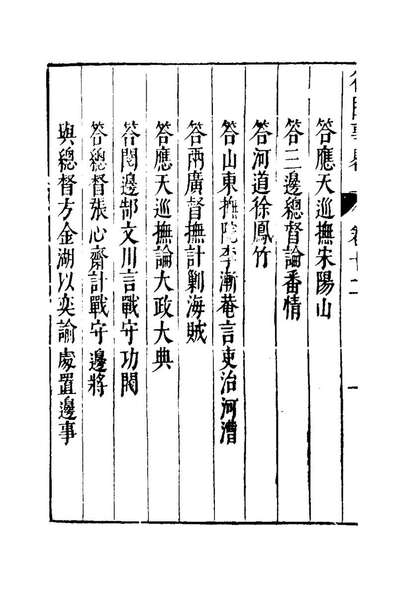 卷廿二
一
答應天巡撫宋陽山
答三邊總督論番情
答河道徐鳳竹
答山東撫院李漸菴言吏治河漕
答兩廣督撫計剿海賊
答應天巡撫論大政大典
答閱邊郜文川言戰守功閥
答總督張心齋計戰守邊將
與總督方金湖以奕諭處置邊事